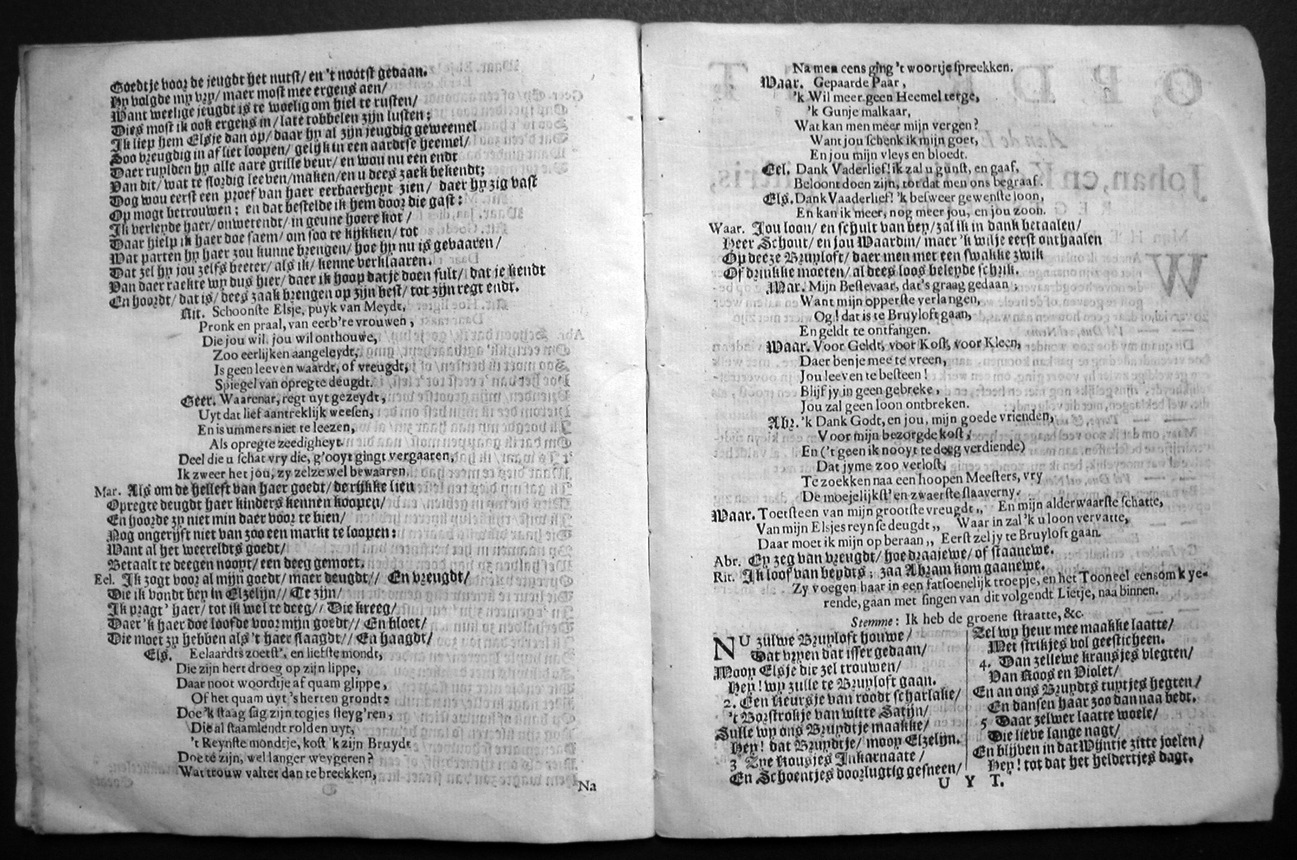 Goedt je voor de jeugdt het nutst/ en 't nootst gedaan.
Hy volgde my vry/ maer most mee ergens aen/
Want weelige jeugdt is te woelig om hiel te rusten/
Dies most ik ook ergens in/ late robbelen zijn lusten;
Ik liep hem Elsje dan op/ daar hy al zijn jeugdig geweemel
Soo vreugdig in af liet loopen/ gelijk in een aardtse heemel/
Daer ruylden hy alle aare grille veur/ en wou nu een endt
Van dit/ wat te slordig leeven/ maken/ en u dees zaek bekendt;
Dog wou eerst een proef van haer eerbaerheyt zien/ daer hy zig vast
Op mogt betrouwen; en dat bestelde ik hem door die gast:
Ik verleyde haer/ onwetendt/ in geune hoere kot/
Daar hielp ik haer doe saem/ om soo te kijkken/ tot
Wat parten hy haer zou kunne brengen/ hoe hy nu is gevaaren/
Dat zel hy jou zelfs beeter/ als ik/ kenne verklaaren.
Van daer raekte wy dus hier/ daer ik hoop dat je doen sult/ dat je kendt
En hoordt/ dat is/ dees zaak brengen op zijn best/ tot zijn regt endt.
Rit. Schoonste Elsje, puyk van Meydt,
Pronk en praal, van eerb're vrouwen,
Die jou wil, jou wil onthouwe,
Zoo eerlijken aangeleydt,
Is geen leeven waardt, of vreugdt,
Spiegel van opregte deugdt.
Geer. Waarenar, regt uyt gezeydt,
Uyt dat lief aantreklijk weesen,
En is ummers niet te leezen,
Als opregte zeedigheyt.
Deel die u schat vry die, g'ooyt gingt vergaaren,
Ik zweer het jou, zy zelze wel bewaaren.
Mar. Als om de hellest van haer goedt/ de rijkke lien
Opregte deugdt haer kinders kennen koopen/
En hoorde zy niet min daer voor te bien/
Nog ongerijst niet van zoo een markt te loopen:
Want al het weereldts goedt/
Betaalt te deegen nooyt/ een deeg gemoet.
Eel. Ik zogt voor al mijn goedt/ maer deugdt// En vreugdt/
Die ik vondt bey in Elzelijn// Te zijn/
Ik pragt' haer/ tot ik wel te deeg// Die kreeg/
Daer 'k haer doe loofde voor mijn goedt// En bloet/
Die moet zy hebben als 't haer slaagdt// En haagdt/
Els. Eelaardts zoetst', en liefste mondt,
Die zijn hert droeg op zijn lippe,
Daar noot woordtje af quam glippe,
Of het quam uyt 's herten grondt:
Doe 'k staag sag zijn togjes steyg'ren,
Die al staamlendt rolden uyt,
't Reynste mondtje, kost 'k zijn Bruydt
Doe te zijn, wel langer weygeren?
Wat trouw valter dan te breekken,
Na
Na men eens ging 't woortje spreekken.
Waar. Gepaarde Paar,
'k Wil meer geen Heemel terge,
'k Gunje malkaar,
Wat kan men meer mijn vergen?
Want jou schenk ik mijn goet,
En jou mijn vleys en bloedt.
Eel. Dank Vaderlief! ik zal u gunst, en gaaf,
Beloont doen zijn, tot dat men ons begraaf.
Els. Dank Vaaderlief! 'k beswer gewenste joon,
En kan ik meer, nog meer jou, en jou zoon.
Waar. Jou loon/ en schult van bey/ zal ik in dank betaalen/
Heer Schout/ en jou Waardin/ maer 'k wil je eerst onthaalen
Op deeze Bruyloft/ daer men met een swakke zwik
Of drinkke moeten/ al dees loos beleyde schrik.
Mar. Mijn Bestevaar, dat's graag gedaan;
Want mijn opperste verlangen,
Og! dat is te Bruyloft gaan,
En geldt te ontfangen.
Waar. Voor Geldt, voor Kost, voor Kleen,
Daer benje mee te vreen,
Jou leeven te besteen!
Blijf jy in geen gebreke,
Jou zal geen loon ontbreken.
Abr. 'k Dank Godt, en jou, mijn goede vrienden,
Voor mijn bezorgde kost,
En ('t geen ik nooyt te deeg verdiende)
Dat jy me zoo verlost,
Te zoekken naa een hoopen Meesters, vry
De moejelijkst' en zwaerste slaaverny.
Waar. Toetsteen van mijn grootste vreugdt,, En mijn alderwaarste schatte,
Van mijn Elsjes reynse deugdt,, Waar in zal 'k u loon vervatte,
Daar moet ik mijn op beraan,, Eerst zel jy te Bruyloft gaan.
Abr. Ey zeg van vreugdt/ hoe draajewe/ of staanewe.
Rit. Ik loof van beydts; zaa Abram kom gaanewe.
Zy voegen haar in een fatsoenelijk troepje, en het Tooneel eens om k ye-
rende, gaan met singen van dit volgendt Lietje, naa binnen.
Stemme: Ik heb de groene straatte, &c.
NU zulwe Bruyloft houwe/
Wat vryen dat isser gedaan/
Moop Elsje die zel trouwen/
Hey! wy zulle te Bruyloft gaan.
2. Een keursje van roodt scharlake/
't Borstrokje van witte Satijn/
Sulle wy ons Bruydtje maakke/
Hey! dat Bruydtje/ moop Elzelijn.
3 Zye kousjes Inkarnaate/
En Schoentjes doorlugtig gesneen/
Zel wy heur mee maakke laatte/
Met strikjes vol geesticheen.
4. Dan zellewe kransjes vlegten/
Van Roos en Violet/
En an ons Bruydts tuytjes hegten/
En dansen haar zoo dan naa bedt.
5 Daar zelwer laatte woele/
Die lieve lange nagt/
En blijven in dat Wijntje zitte joelen/
Hey! tot dat het heldertjes dagt.
U Y T.